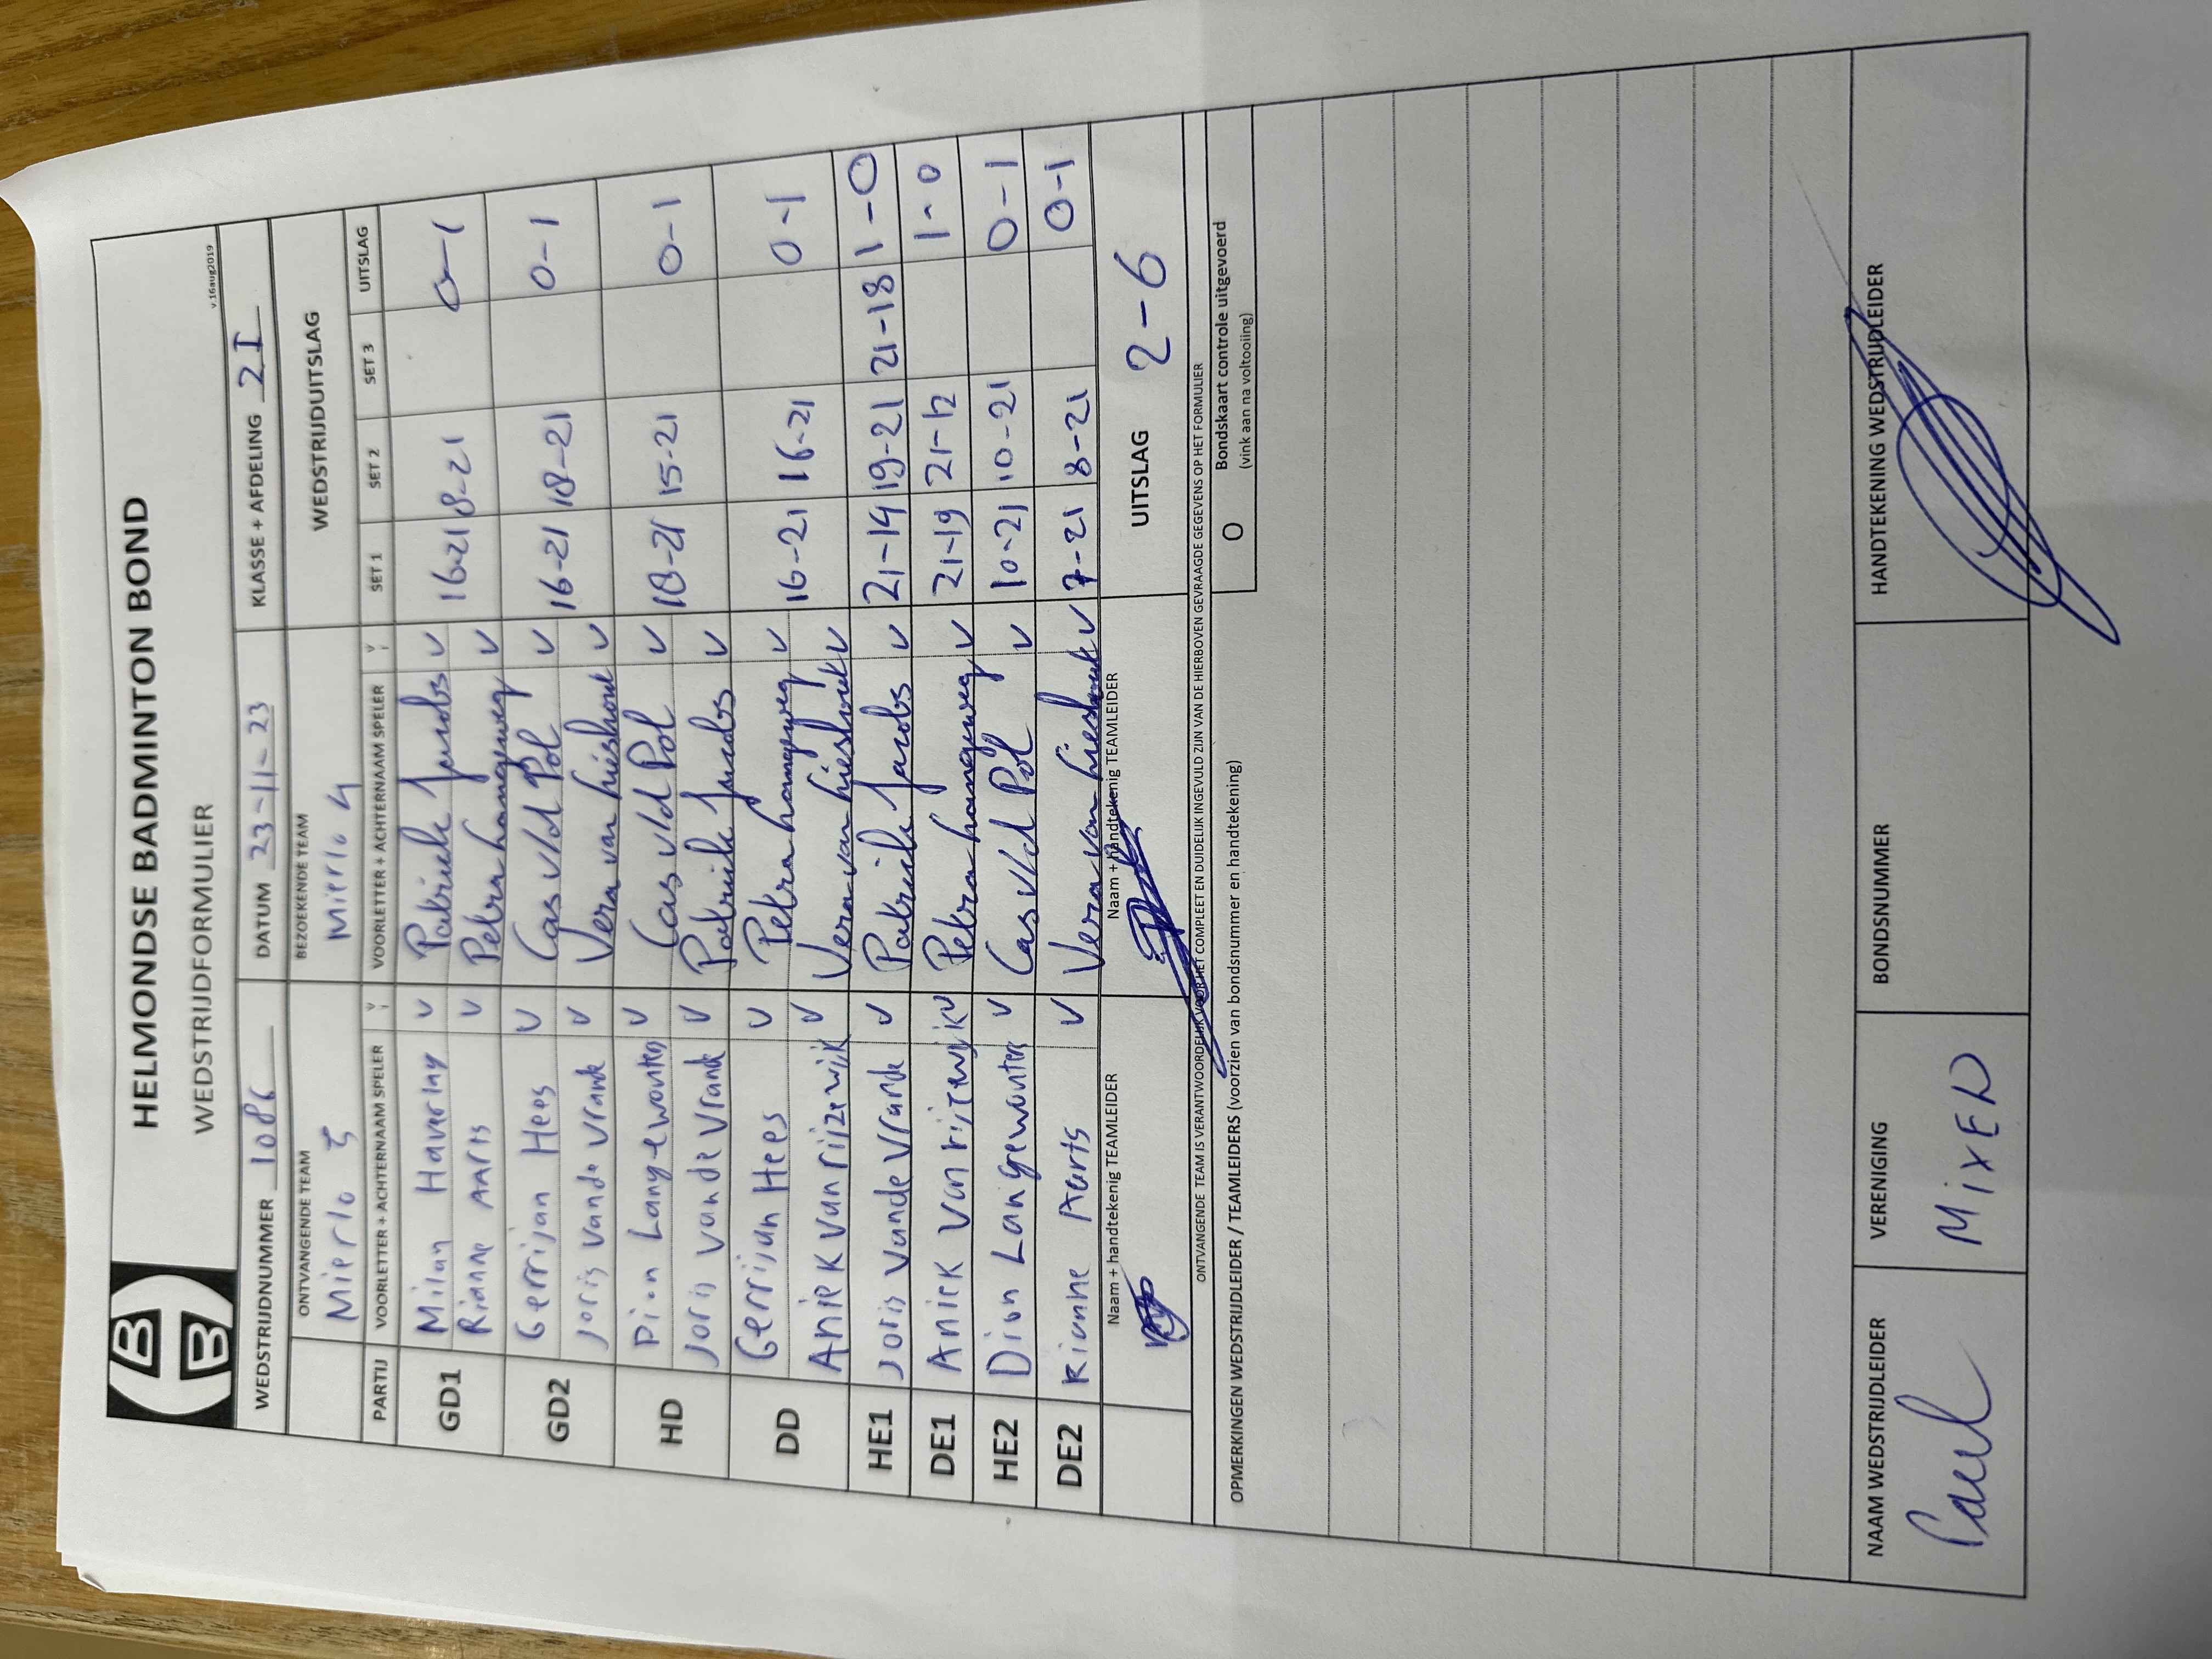 HELMONDSE BADMINTON BOND
WEDSTRIJDFORMULIER
v.16aug2019
WEDSTRIJDNUMMER 1086 DATUM 23-11-23 KLASSE + AFDELING 2I
ONTVANGENDE TEAM BEZOEKENDE TEAM WEDSTRIJDUITSLAG
Mierlo 5 Mierlo 4
PARTIJ VOORLETTER + ACHTERNAAM SPELER V VOORLETTER + ACHTERNAAM SPELER V SET 1 SET 2 SET 3 UITSLAG
GD1 Milan Haverlay v Patrick Jacobs v 16-21 8-21 0-1
Rianne Aarts v Petra hamgeweg v
GD2 Gerrijan Hees v Cas v/d Pol v 16-21 18-21 0-1
Joris vande Vrande v Vera van Lieshout v
HD Dion Langewouters v Cas v/d Pol v 18-21 15-21 0-1
Joris van de Vrande v Patrick Jacobs v
DD Gerrijan Hees v Petra hamgeweg v 16-21 16-21 0-1
Aniek van rijzewijk v Vera van Lieshout v
HE1 Joris vande Vrande v Patrick Jacobs v 21-14 19-21 21-18 1-0
DE1 Aniek van rijzewijk v Petra hamgeweg v 21-19 21-12 1-0
HE2 Dion Langewouters v Cas v/d Pol v 10-21 10-21 0-1
DE2 Rianne Aarts v Vera van Lieshout v 7-21 8-21 0-1
Naam + handtekenig TEAMLEIDER Naam + handtekenig TEAMLEIDER UITSLAG 2-6
ONTVANGENDE TEAM IS VERANTWOORDELIJK VOOR HET COMPLEET EN DUIDELIJK INGEVULD ZIJN VAN DE HIERBOVEN GEVRAAGDE GEGEVENS OP HET FORMULIER
OPMERKINGEN WEDSTRIJDLEIDER / TEAMLEIDERS (voorzien van bondsnummer en handtekening) O Bondskaart controle uitgevoerd
(vink aan na voltooiing)
NAAM WEDSTRIJDLEIDER VERENIGING BONDSNUMMER HANDTEKENING WEDSTRIJDLEIDER
Paul MixED